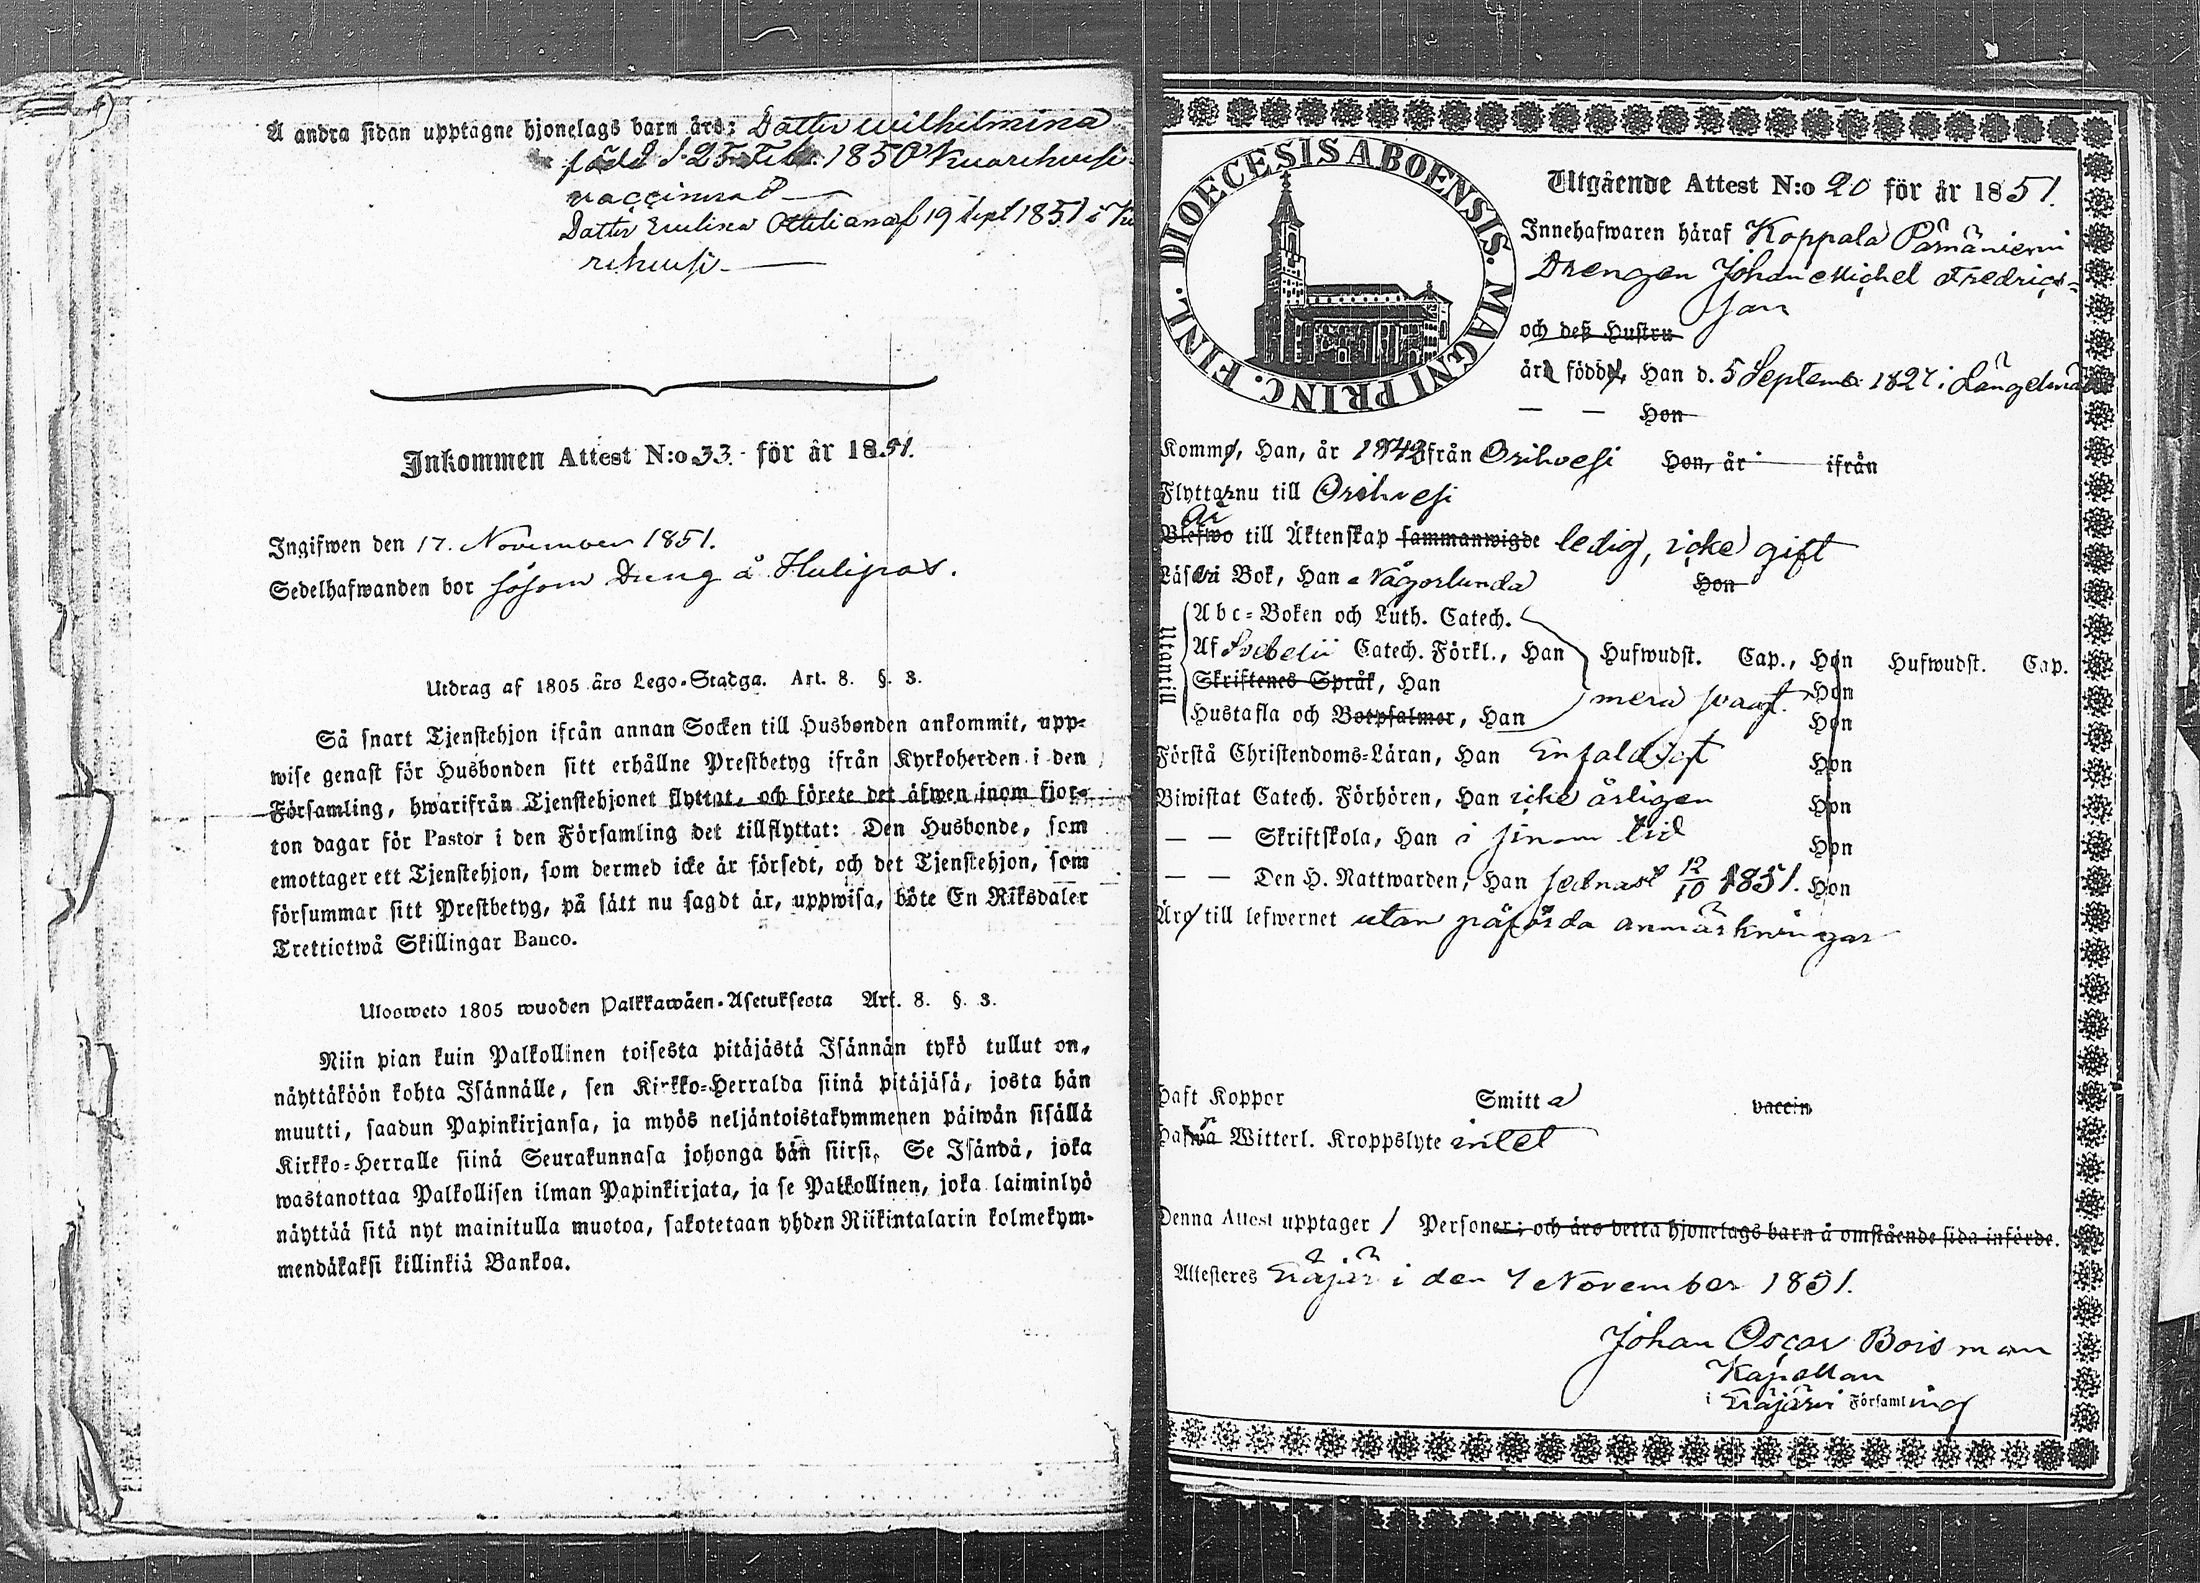 Å andra sidan upptagne hjonelags barn äro: Dotter Wilhelmina
född d. 25 Feb. 1850 i Kuorehvesi
vaccinerad —
Dotter Evelina Ottiliana f 19 Sept 1851 i Kuo
rehvesi —
Inkommen Attest N:o 33. för år 1851.
Ingifwen den 17. November 1851.
Sedelhafwanden bor såsom Dreng å Hulipas.
Utdrag af 1805 års Lego-Stadga. Art. 8. §. 3.
Så snart Tjenstehjon ifrån annan Socken till Husbonden ankommit, upp-
wise genast för Husbonden sitt erhållne Prestbetyg ifrån Kyrkoherden i den
Församling, hwarifrån Tjenstehjonet flyttat, och förete det äfwen inom fjor-
ton dagar för Pastor i den Församling det tillflyttat: Den Husbonde, som
emottager ett Tjenstehjon, som dermed icke är försedt, och det Tjenstehjon, som
försummar sitt Prestbetyg, på sätt nu sagdt är, uppwisa, böte En Riksdaler
Trettiotwå Skillingar Banco.
Ulosweto 1805 wuoden Palkkawäen-Asetuksesta Art. 8. §. 3.
Niin pian kuin Palkollinen toisesta pitäjästä Isännän tykö tullut on,
näyttäköön kohta Isännälle, sen Kirkko-Herralda siinä pitäjäsä, josta hän
muutti, saadun Papinkirjansa, ja myös neljäntoistakymmenen päiwän sisällä
Kirkko-Herralle siinä Seurakunnasa johonga hän siirsi. Se Isändä, joka
wastanottaa Palkollisen ilman Papinkirjata, ja se Palkollinen, joka laiminlyö
näyttää sitä nyt mainitulla muotoa, sakotetaan yhden Riikintalarin kolmekym-
mendäkaksi killinkiä Bankoa.
DIOECESIS ABOENSIS. MAGNI PRINC. FINL.
Utgående Attest N:o 20 för år 1851.
Innehafwaren häraf Koppala Pämäniemi
Drengen Johan Michel Fredrics-
son
och deß Hustru
äro född, Han d. 5 Septemb. 1827 i Längelmä
— — Hon
Komm, Han, år 1843 från Orihvesi Hon, år ifrån
Flyttar nu till Orihvesi
Är
Blefwo till Äktenskap sammanwigde ledig, icke gift
Läser i Bok, Han någorlunda Hon
Utantill
Abc-Boken och Luth. Catech.
Af Svebelii Catech. Förkl., Han Hufwudst. Cap., Hon Hufwudst. Cap.
Skriftenes Språk, Han mera svagt. Hon
Hustafla och Botpsalmer, Han Hon
Förstå Christendoms-Läran, Han Enfaldigt Hon
Biwistat Catech. Förhören, Han icke årligen Hon
— — Skriftskola, Han i sinom tid Hon
— — Den H. Nattwarden, Han sednast 12/10 1851. Hon
Äro till lefwernet utan påförda anmärkningar
Haft Koppor Smitta vaccin
Hafwa Witterl. Kroppslyte intet
Denna Attest upptager 1 Personer; och äro detta hjonelags barn å omstående sida införde.
Attesteres Eräjärvi den 7 November 1851.
Johan Oscar Boisman
Kapellan
i Eräjärvi Församling